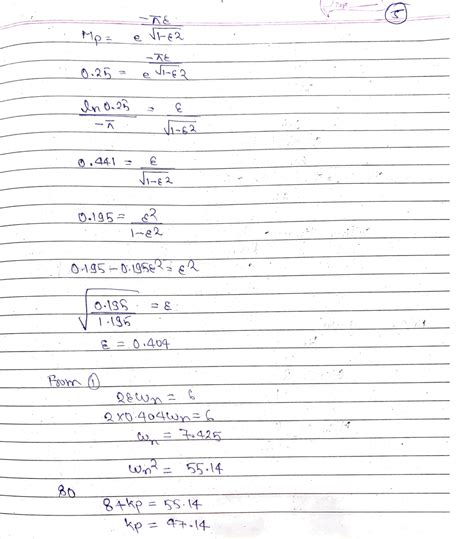 5
Mp = e^(-πε/√(1-ε2))
0.25 = e^(-πε/√(1-ε2))
ln 0.25/-π = ε/√(1-ε2)
0.441 = ε/√(1-ε2)
0.195 = ε2/1-ε2
0.195 - 0.195ε2 = ε2
√(0.195/1.195) = ε
ε = 0.404
From ①
2εωn = 6
2×0.404ωn = 6
ωn = 7.425
ωn2 = 55.14
so
8+kp = 55.14
kp = 47.14